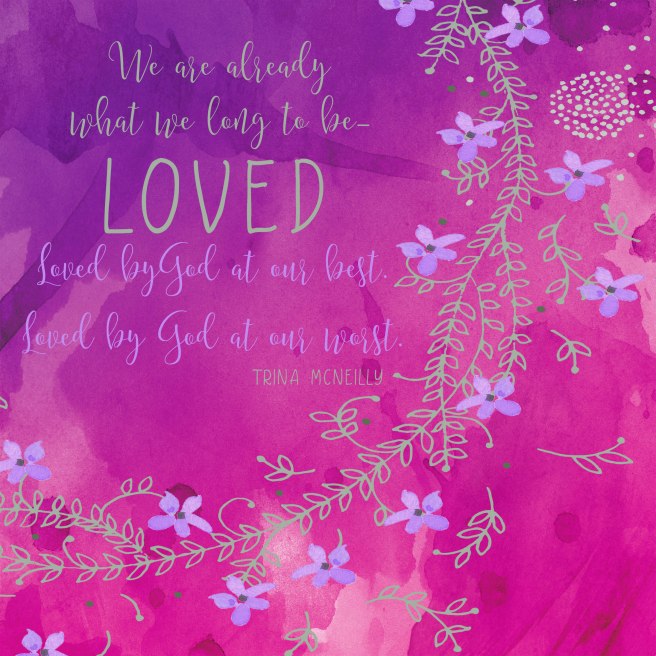 We are already
what we long to be-
LOVED
Loved by God at our best.
Loved by God at our worst.
TRINA MCNEILLY